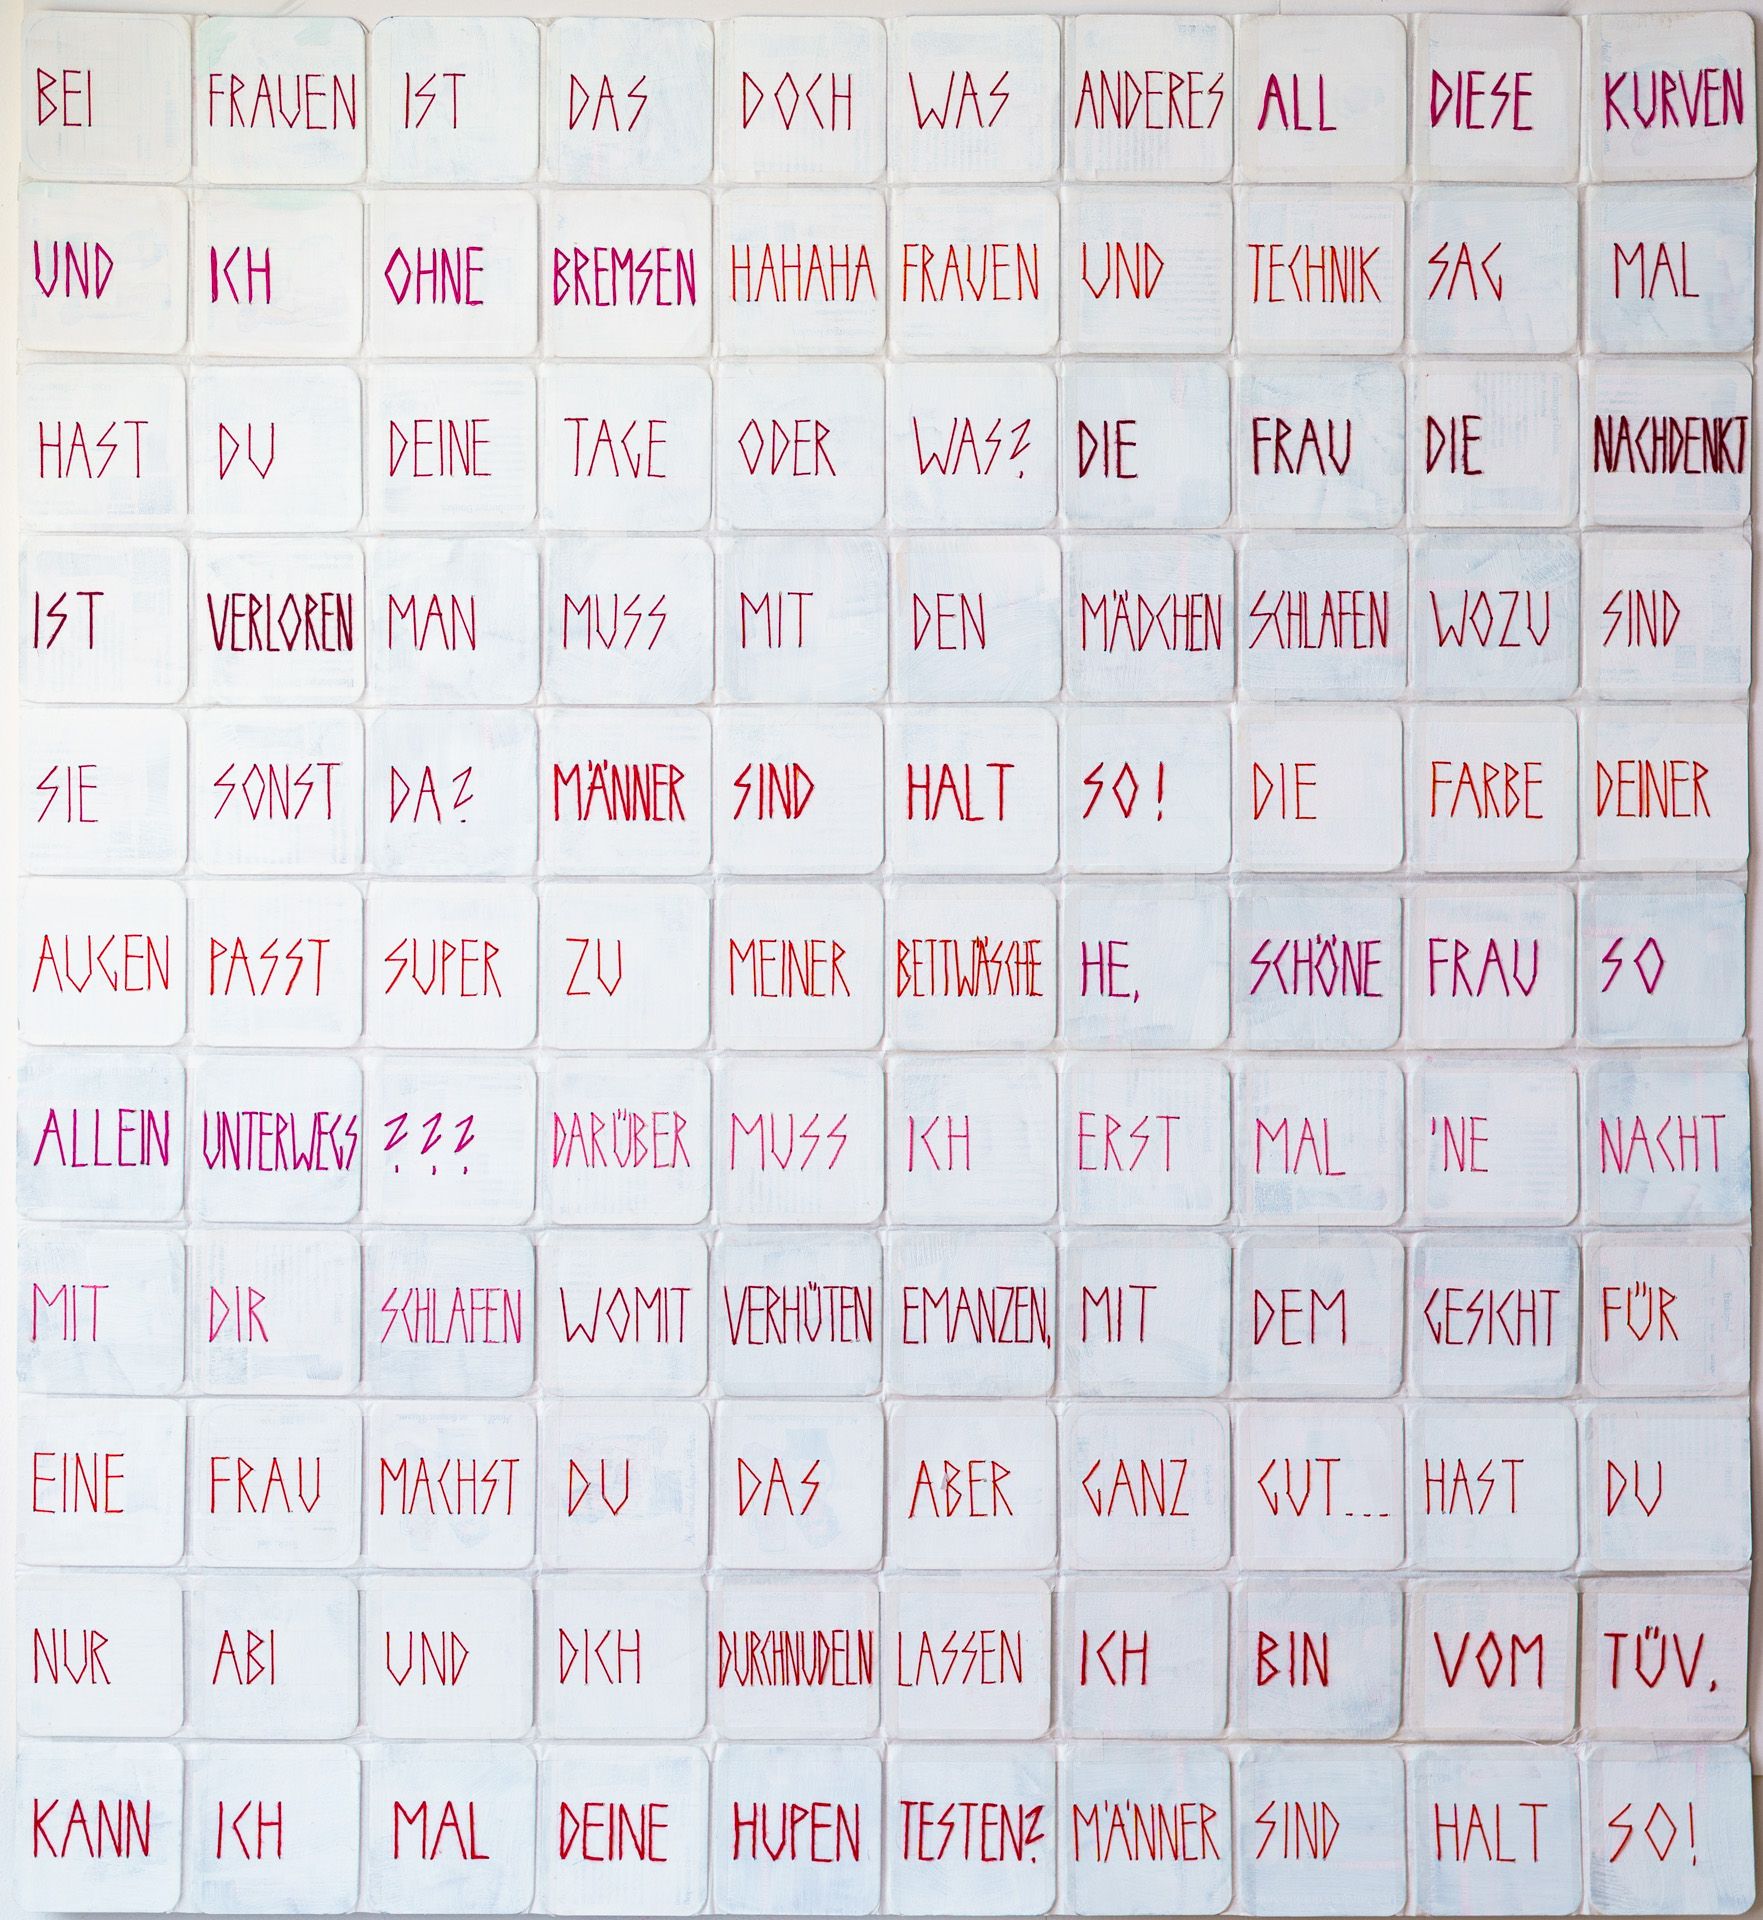 BEI FRAUEN IST DAS DOCH WAS ANDERES ALL DIESE KURVEN
UND ICH OHNE BREMSEN HAHAHA FRAUEN UND TECHNIK SAG MAL
HAST DU DEINE TAGE ODER WAS? DIE FRAU DIE NACHDENKT
IST VERLOREN MAN MUSS MIT DEN MÄDCHEN SCHLAFEN WOZU SIND
SIE SONST DA? MÄNNER SIND HALT SO! DIE FARBE DEINER
AUGEN PASST SUPER ZU MEINER BETTWÄSCHE HE, SCHÖNE FRAU SO
ALLEIN UNTERWEGS ??? DARÜBER MUSS ICH ERST MAL 'NE NACHT
MIT DIR SCHLAFEN WOMIT VERHÜTEN EMANZEN, MIT DEM GESICHT FÜR
EINE FRAU MACHST DU DAS ABER GANZ GUT... HAST DU
NUR ABI UND DICH DURCHNUDELN LASSEN ICH BIN VOM TÜV,
KANN ICH MAL DEINE HUPEN TESTEN? MÄNNER SIND HALT SO!